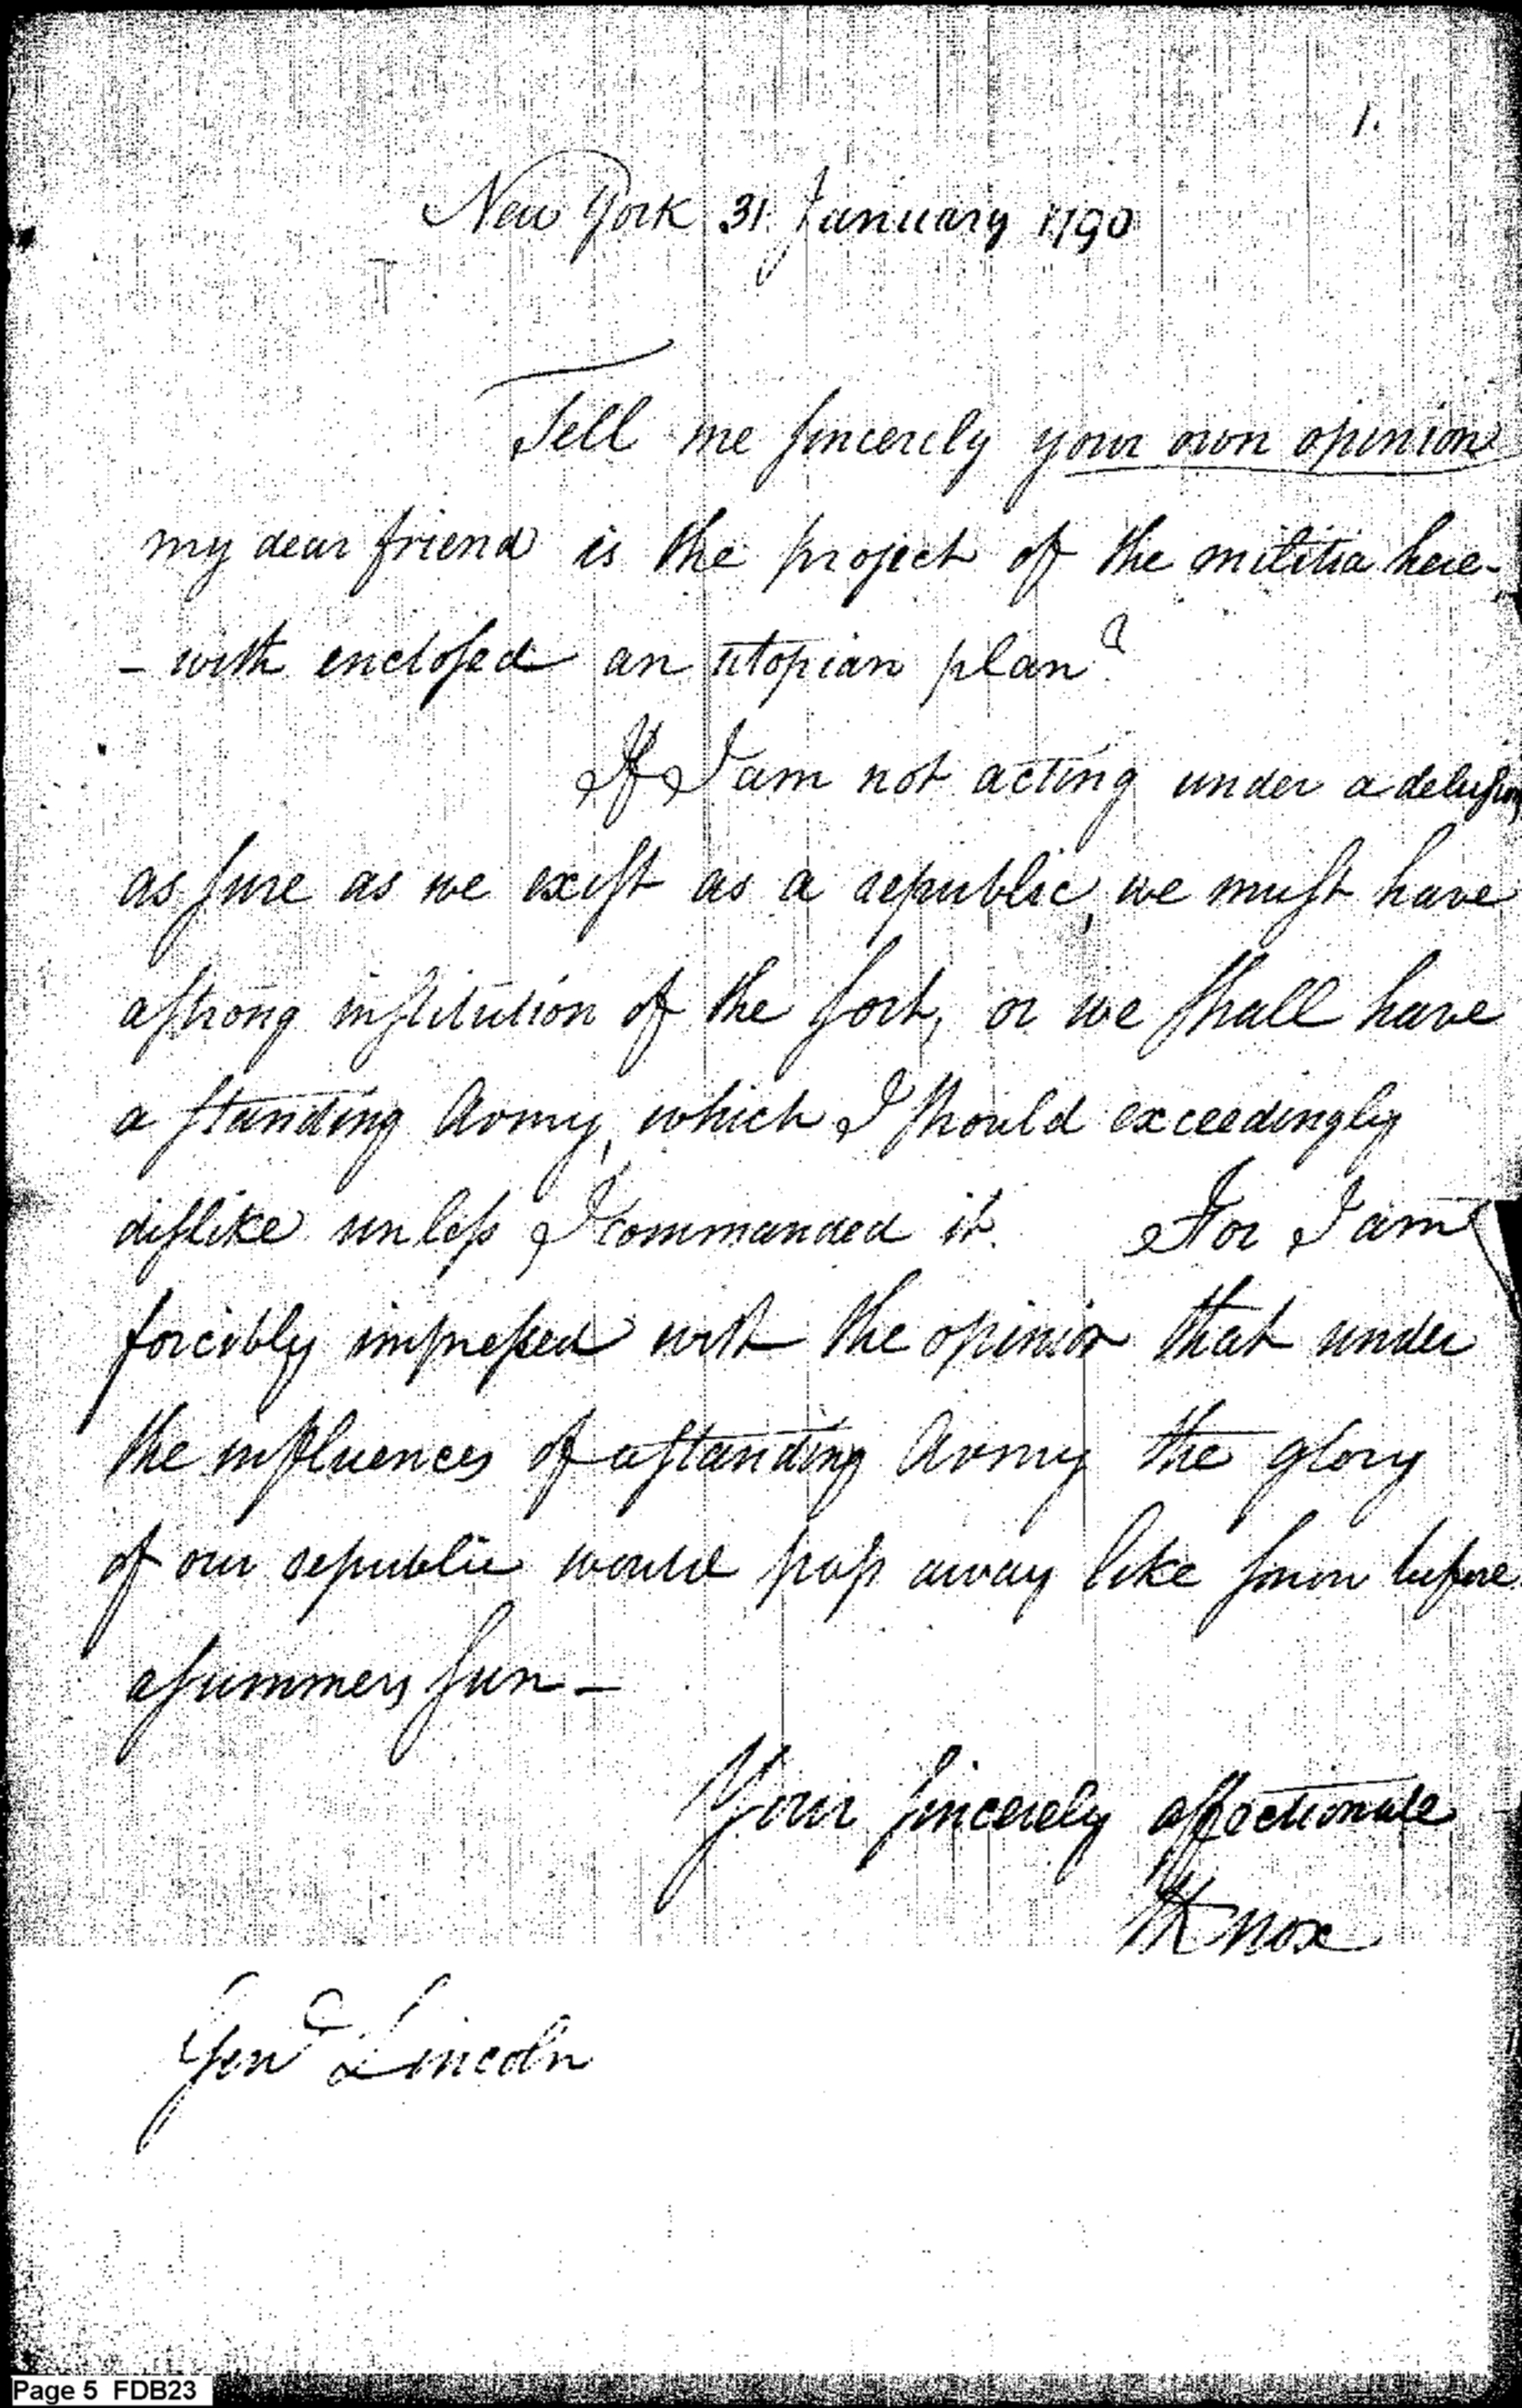 1.
New York 31 January 1790
Tell me sincerely your own opinion
my dear friend is the project of the militia here-
- with enclosed an utopian plan?
If I am not acting under a delusion,
as sure as we exist as a republic, we must have
a strong institution of the sort, or we shall have
a standing Army, which I should exceedingly
dislike unless I commanded it. For I am
forcibly impressed with the opinion that under
the influences of a standing Army the glory
of our republic would pass away like snow before
a summers sun -
Your sincerely affectionate
HKnox
Genl Lincoln
Page 5 FDB23